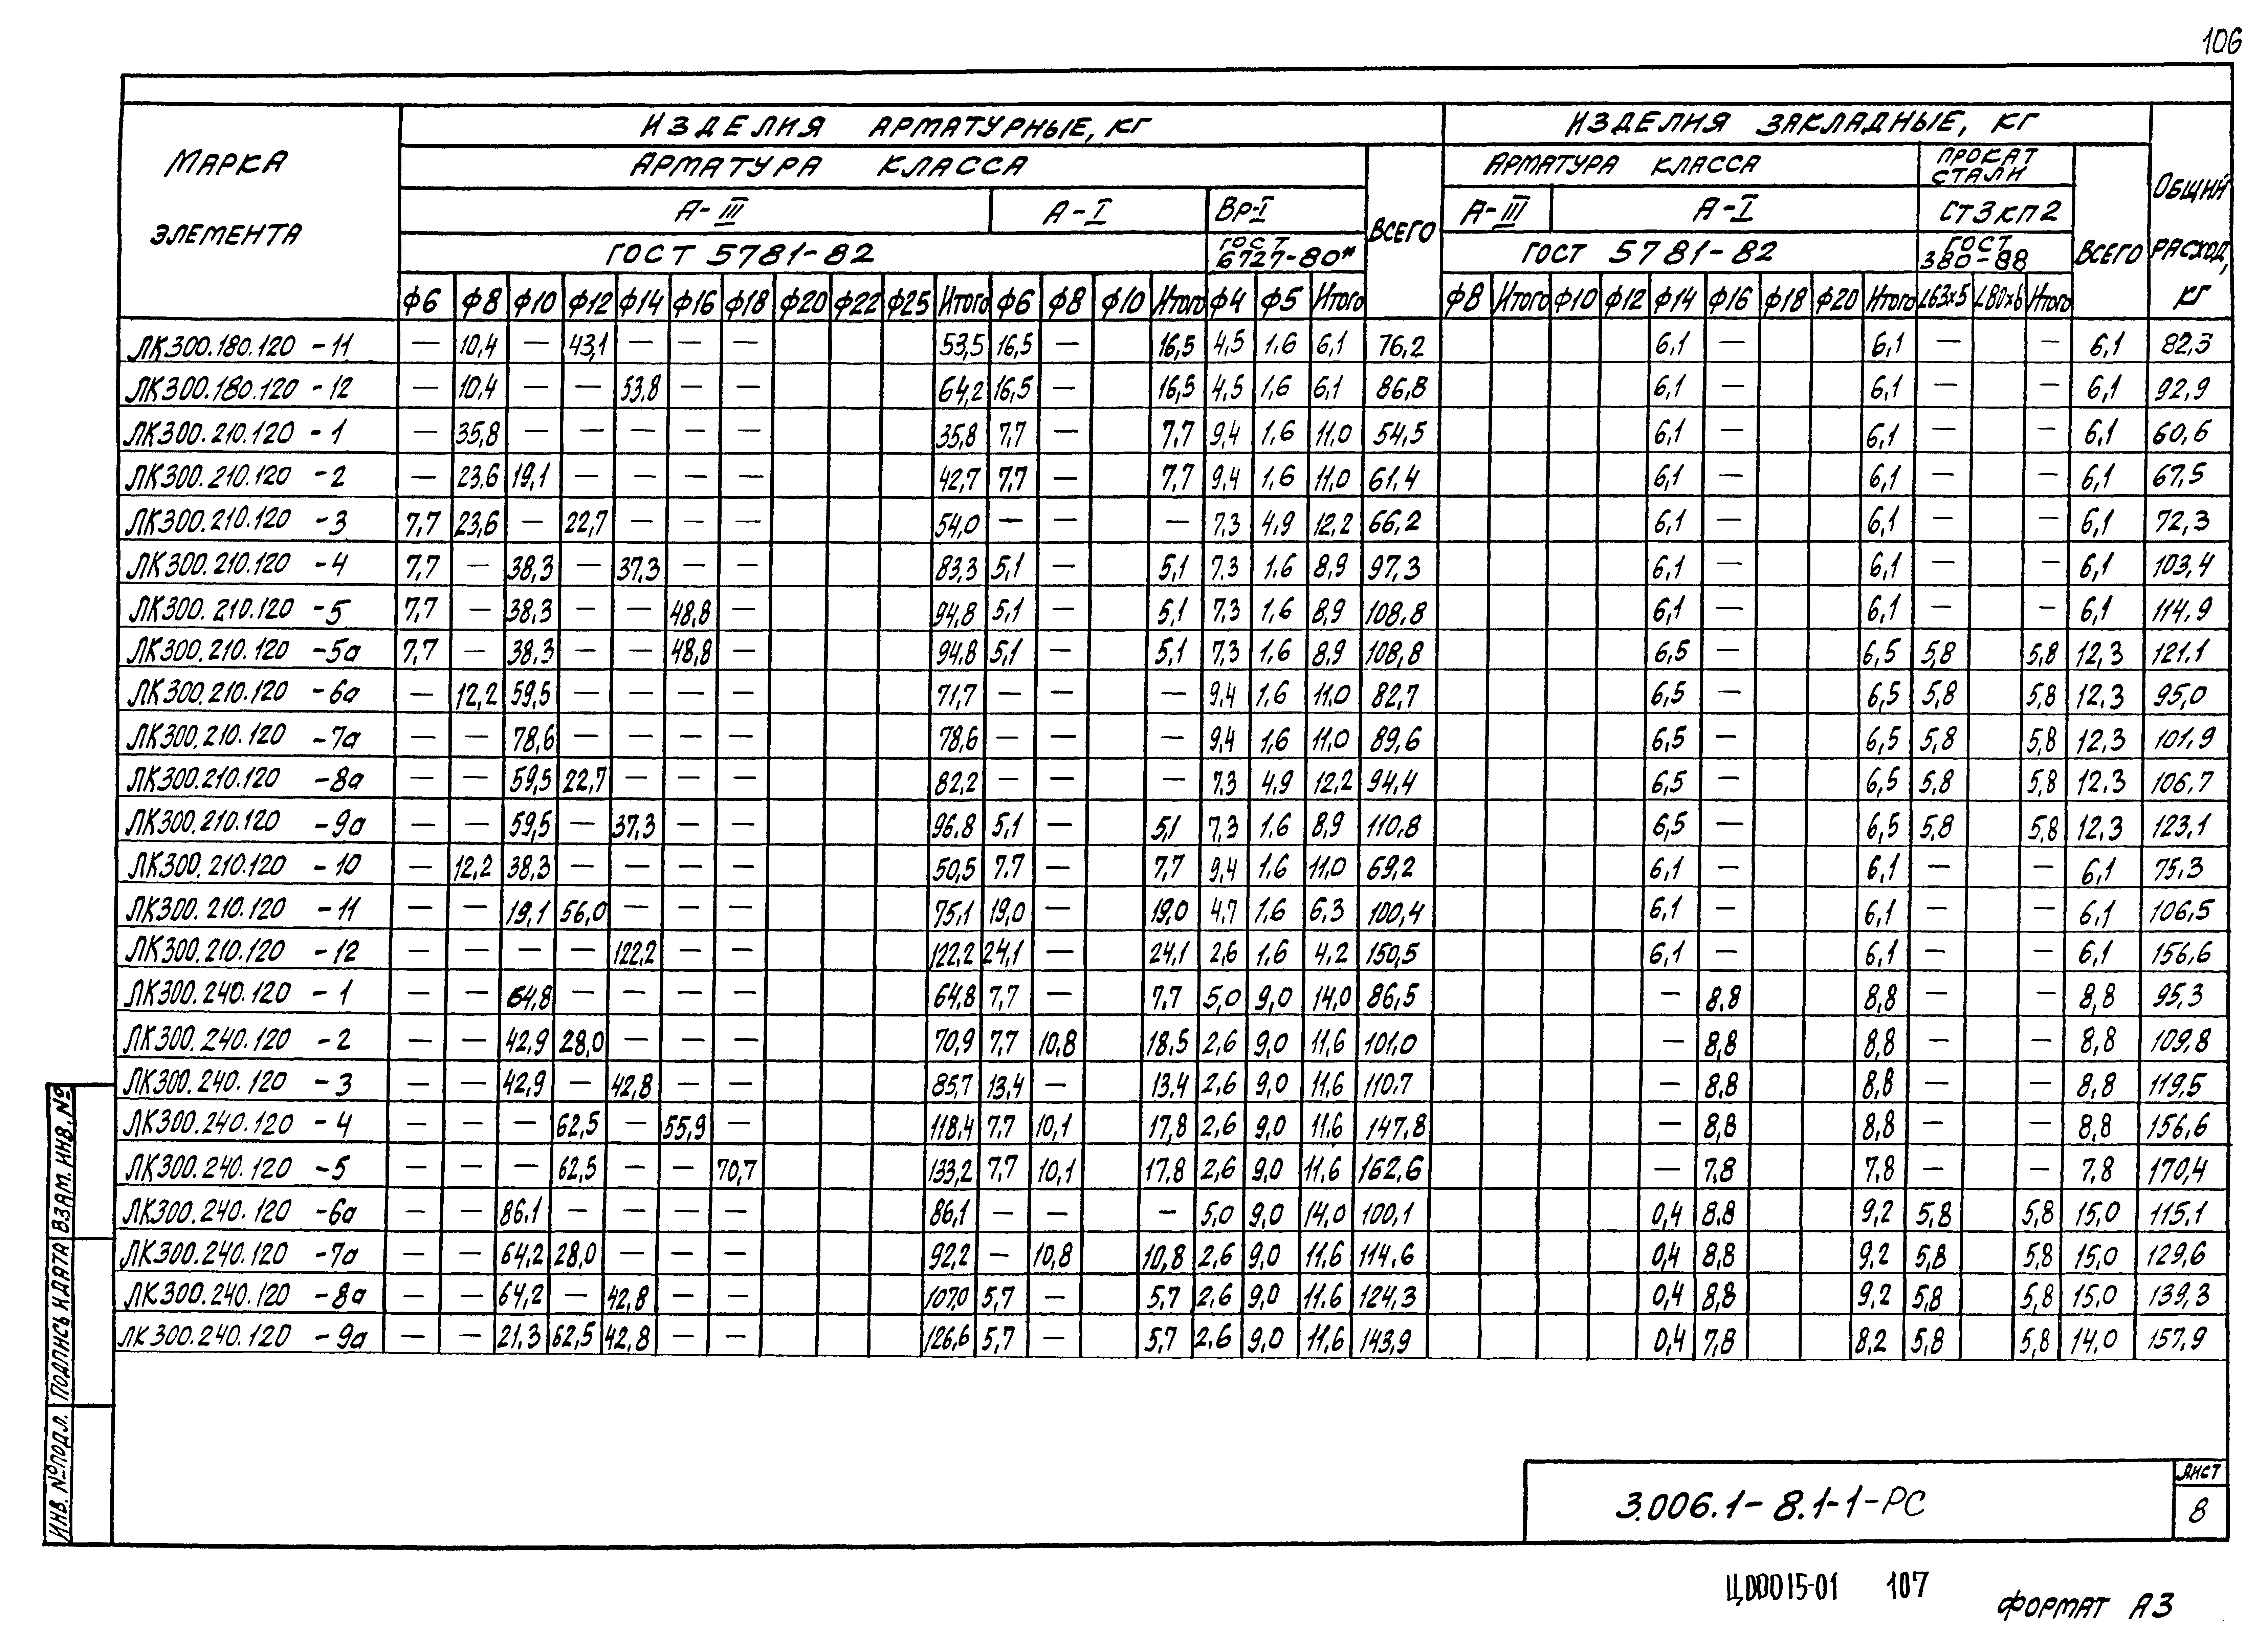 106
МАРКА ЭЛЕМЕНТА
ИЗДЕЛИЯ АРМАТУРНЫЕ, КГ
ИЗДЕЛИЯ ЗАКЛАДНЫЕ, КГ
ОБЩИЙ РАСХОД, КГ
АРМАТУРА КЛАССА
ВСЕГО
АРМАТУРА КЛАССА
ПРОКАТ СТАЛИ
ВСЕГО
А-III А-I Вр-I А-III А-I СТ3КП2
ГОСТ 5781-82 ГОСТ 6727-80* ГОСТ 5781-82 ГОСТ 380-88
ф6 ф8 ф10 ф12 ф14 ф16 ф18 ф20 ф22 ф25 Итого ф6 ф8 ф10 Итого ф4 ф5 Итого ф8 Итого ф10 ф12 ф14 ф16 ф18 ф20 Итого L63х5 L80х6 Итого
ЛК300.180.120 -11 — 10,4 — 43,1 — — — 53,5 16,5 — 16,5 4,5 1,6 6,1 76,2 6,1 — 6,1 — — 6,1 82,3
ЛК300.180.120 -12 — 10,4 — — 53,8 — — 64,2 16,5 — 16,5 4,5 1,6 6,1 86,8 6,1 — 6,1 — — 6,1 92,9
ЛК300.210.120 -1 — 35,8 — — — — — 35,8 7,7 — 7,7 9,4 1,6 11,0 54,5 6,1 — 6,1 — — 6,1 60,6
ЛК300.210.120 -2 — 23,6 19,1 — — — — 42,7 7,7 — 7,7 9,4 1,6 11,0 61,4 6,1 — 6,1 — — 6,1 67,5
ЛК300.210.120 -3 7,7 23,6 — 22,7 — — — 54,0 — — — 7,3 4,9 12,2 66,2 6,1 — 6,1 — — 6,1 72,3
ЛК300.210.120 -4 7,7 — 38,3 — 37,3 — — 83,3 5,1 — 5,1 7,3 1,6 8,9 97,3 6,1 — 6,1 — — 6,1 103,4
ЛК300.210.120 -5 7,7 — 38,3 — — 48,8 — 94,8 5,1 — 5,1 7,3 1,6 8,9 108,8 6,1 — 6,1 — — 6,1 114,9
ЛК300.210.120 -5а 7,7 — 38,3 — — 48,8 — 94,8 5,1 — 5,1 7,3 1,6 8,9 108,8 6,5 — 6,5 5,8 5,8 12,3 121,1
ЛК300.210.120 -6а — 12,2 59,5 — — — — 71,7 — — — 9,4 1,6 11,0 82,7 6,5 — 6,5 5,8 5,8 12,3 95,0
ЛК300.210.120 -7а — — 78,6 — — — — 78,6 — — — 9,4 1,6 11,0 89,6 6,5 — 6,5 5,8 5,8 12,3 101,9
ЛК300.210.120 -8а — — 59,5 22,7 — — — 82,2 — — — 7,3 4,9 12,2 94,4 6,5 — 6,5 5,8 5,8 12,3 106,7
ЛК300.210.120 -9а — — 59,5 — 37,3 — — 96,8 5,1 — 5,1 7,3 1,6 8,9 110,8 6,5 — 6,5 5,8 5,8 12,3 123,1
ЛК300.210.120 -10 — 12,2 38,3 — — — — 50,5 7,7 — 7,7 9,4 1,6 11,0 69,2 6,1 — 6,1 — — 6,1 75,3
ЛК300.210.120 -11 — — 19,1 56,0 — — — 75,1 19,0 — 19,0 4,7 1,6 6,3 100,4 6,1 — 6,1 — — 6,1 106,5
ЛК300.210.120 -12 — — — — 122,2 — — 122,2 24,1 — 24,1 2,6 1,6 4,2 150,5 6,1 — 6,1 — — 6,1 156,6
ЛК300.240.120 -1 — — 64,8 — — — — 64,8 7,7 — 7,7 5,0 9,0 14,0 86,5 — 8,8 8,8 — — 8,8 95,3
ЛК300.240.120 -2 — — 42,9 28,0 — — — 70,9 7,7 10,8 18,5 2,6 9,0 11,6 101,0 — 8,8 8,8 — — 8,8 109,8
ЛК300.240.120 -3 — — 42,9 — 42,8 — — 85,7 13,4 — 13,4 2,6 9,0 11,6 110,7 — 8,8 8,8 — — 8,8 119,5
ЛК300.240.120 -4 — — — 62,5 — 55,9 — 118,4 7,7 10,1 17,8 2,6 9,0 11,6 147,8 — 8,8 8,8 — — 8,8 156,6
ЛК300.240.120 -5 — — — 62,5 — — 70,7 133,2 7,7 10,1 17,8 2,6 9,0 11,6 162,6 — 7,8 7,8 — — 7,8 170,4
ЛК300.240.120 -6а — — 86,1 — — — — 86,1 — — — 5,0 9,0 14,0 100,1 0,4 8,8 9,2 5,8 5,8 15,0 115,1
ЛК300.240.120 -7а — — 64,2 28,0 — — — 92,2 — 10,8 10,8 2,6 9,0 11,6 114,6 0,4 8,8 9,2 5,8 5,8 15,0 129,6
ЛК300.240.120 -8а — — 64,2 — 42,8 — — 107,0 5,7 — 5,7 2,6 9,0 11,6 124,3 0,4 8,8 9,2 5,8 5,8 15,0 139,3
ЛК300.240.120 -9а — — 21,3 62,5 42,8 — — 126,6 5,7 — 5,7 2,6 9,0 11,6 143,9 0,4 7,8 8,2 5,8 5,8 14,0 157,9
ВЗАМ. ИНВ. №
ПОДПИСЬ И ДАТА
ИНВ. № ПОДЛ.
3.006.1-8.1-1-РС
ЛИСТ
8
Ц00015-01 107
ФОРМАТ А3